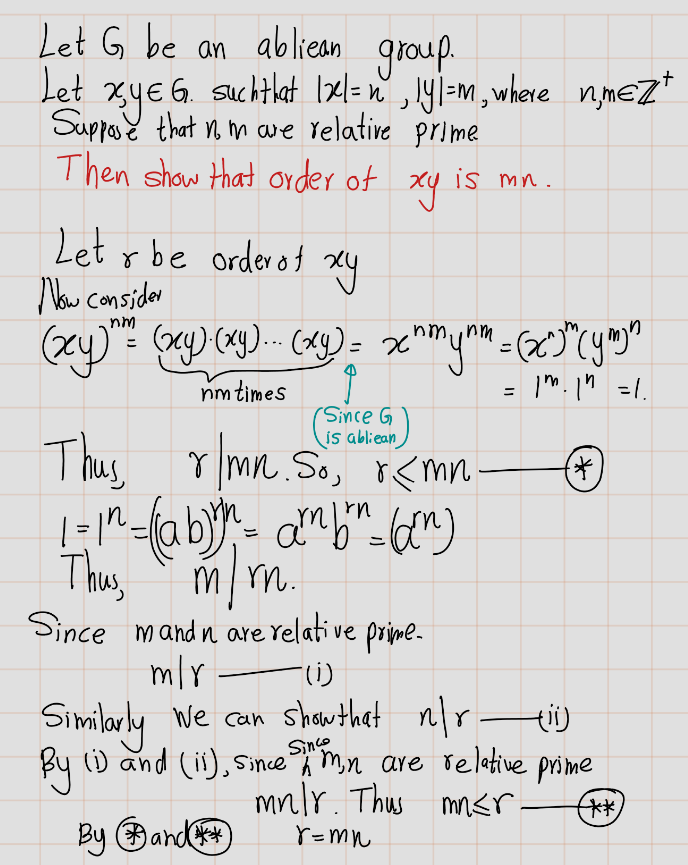 Let G be an abliean group.
Let x,y∈G. suchthat |x|=n, |y|=m, where n,m∈ℤ⁺
Suppose that n,m are relative prime
Then show that order of xy is mn.
Let r be order of xy
Now consider
(xy)ⁿᵐ = (xy)·(xy)... (xy) = xⁿᵐyⁿᵐ = (xⁿ)ᵐ(yᵐ)ⁿ
nm times
= 1ᵐ·1ⁿ = 1.
(Since G
is abliean)
Thus, r|mn. So, r≤mn —— (*)
1=1ⁿ=((ab)ʳ)ⁿ = aʳⁿbʳⁿ = (aʳⁿ)
Thus, m|rn.
Since m and n are relative prime.
m|r —— (i)
Similarly We can show that n|r —— (ii)
By (i) and (ii), since since m,n are relative prime
mn|r. Thus mn≤r —— (**)
By (*) and (**) r=mn